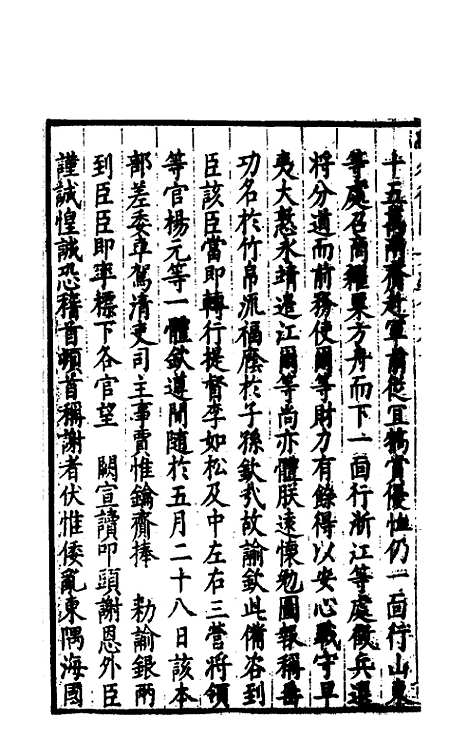 十五萬兩齎赴軍前從宜犒賞優恤仍一面行山東
等處召商糴粟方舟而下一面行浙江等處徵兵選
將分道而前務使爾等財力有餘得以安心戰守早
夷大憝永靖邊江爾等尚亦體朕遠懷勉圖報稱垂
功名於竹帛流福廕於子孫欽哉故諭欽此備咨到
臣該臣當即轉行提督李如松及中左右三營將領
等官楊元等一體欽遵間隨於五月二十八日該本
部差委車駕清吏司主事賈惟鑰齎捧 勑諭銀兩
到臣臣即率標下各官望 闕宣讀叩頭謝恩外臣
謹誠惶誠恐稽首頓首稱謝者伏惟倭亂東隅海國